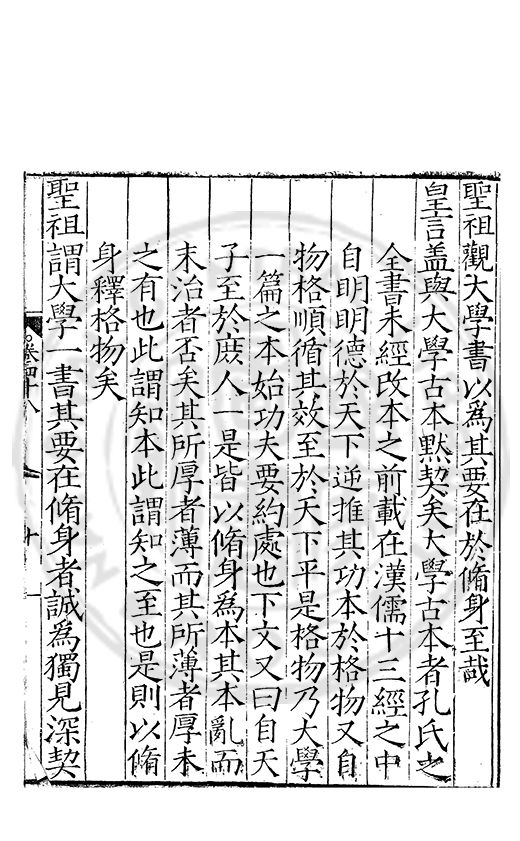 聖祖觀大學書以爲其要在於脩身至哉
皇言蓋與大學古本黙契矣大學古本者孔氏之
全書未經改本之前載在漢儒十三經之中
自明明德於天下逆推其功本於格物又自
物格順循其效至於天下平是格物乃大學
一篇之本始功夫要約處也下文又曰自天
子至於庶人一是皆以脩身爲本其本亂而
末治者否矣其所厚者薄而其所薄者厚未
之有也此謂知本此謂知之至也是則以脩
身釋格物矣
聖祖謂大學一書其要在脩身者誠爲獨見深契
卷四十八
十一